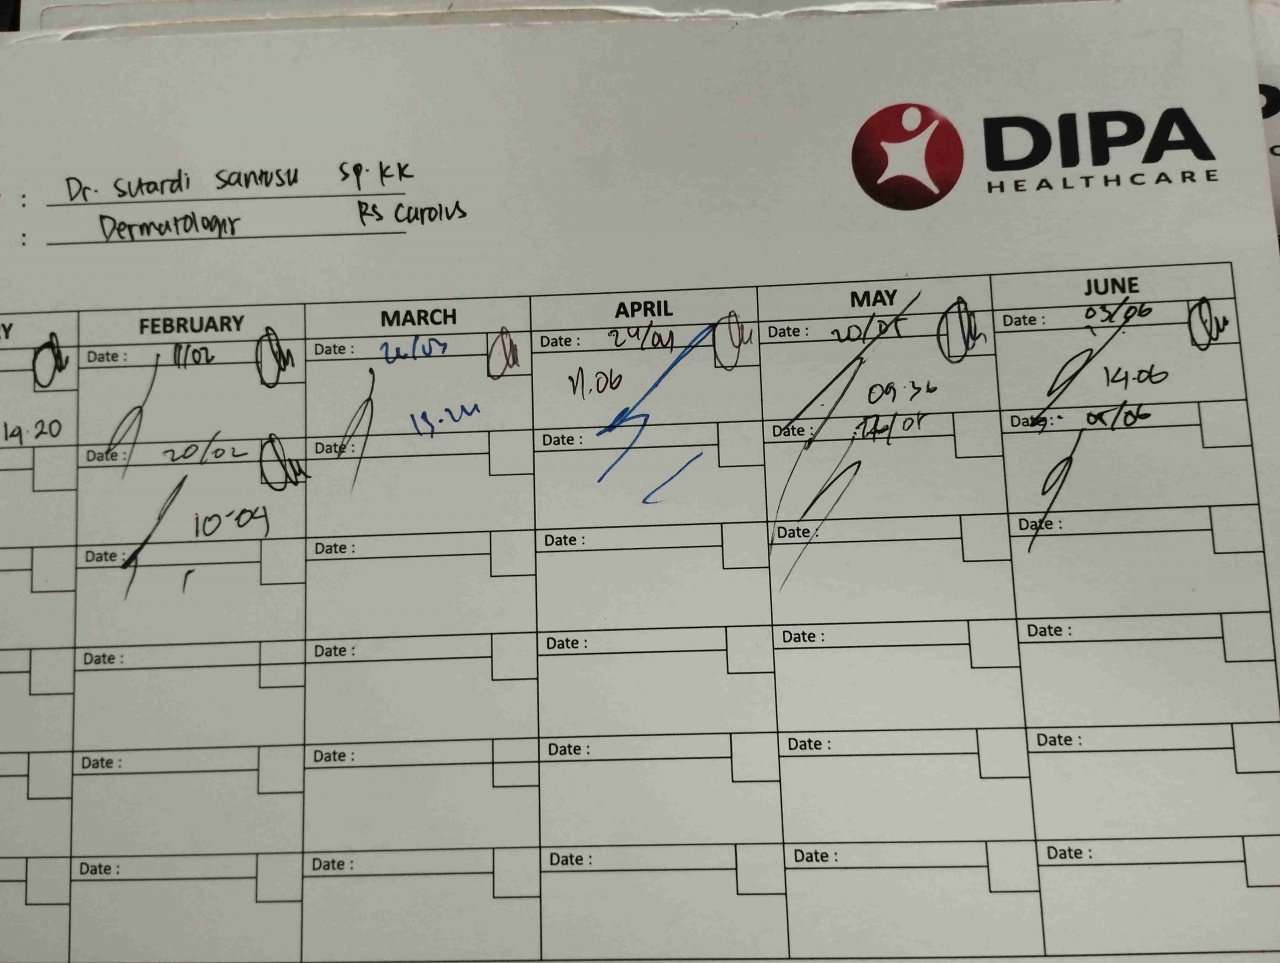 DIPA
HEALTHCARE
: Dr. Sutardi Santusu Sp.KK
: Dermatologir RS Carolus
Y FEBRUARY MARCH APRIL MAY JUNE
Date : 11/02 Date : Date : 24/04 Date : 20/05 Date : 03/06
19.20 11.06 09.36 14.06
Date : 20/02 Date : Date : Date : Date : 05/06
10-09
Date : Date : Date : Date : Date :
Date : Date : Date : Date : Date :
Date : Date : Date : Date : Date :
Date : Date : Date : Date : Date :